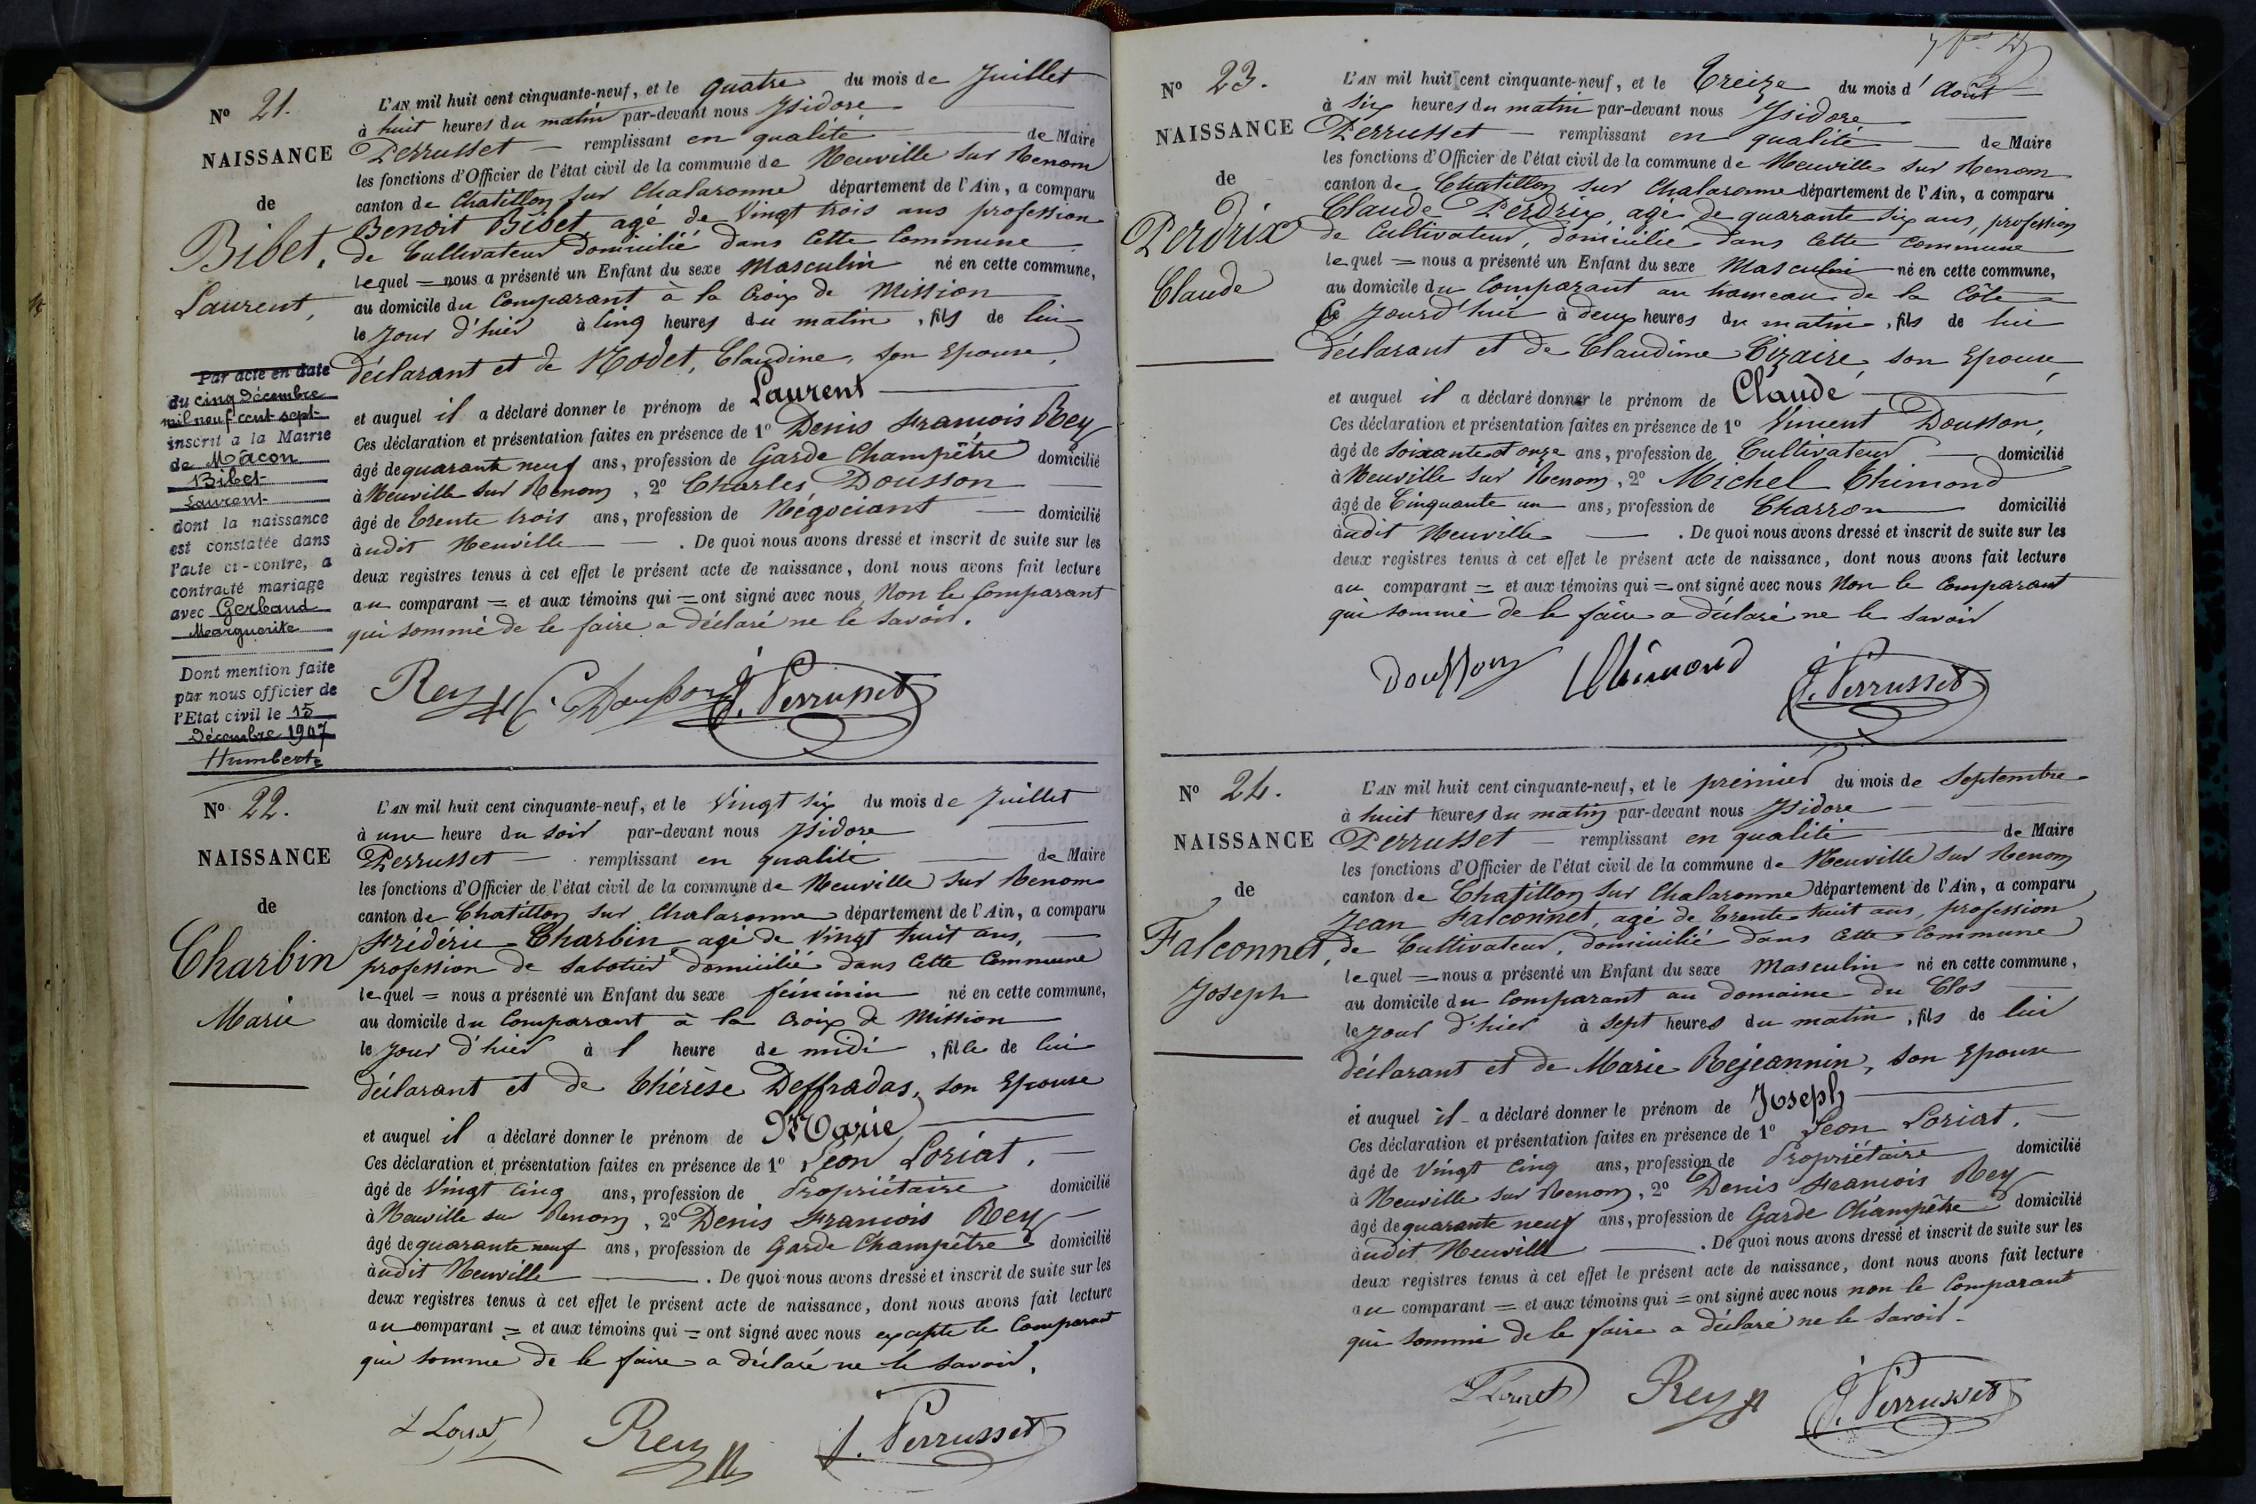 N° 21.
NAISSANCE
de
Bibet,
Laurent,
Par acte en date
du cinq Décembre
mil neuf cent sept
inscrit à la Mairie
de Mâcon
Bibet
Laurent
dont la naissance
est constatée dans
l'acte ci-contre, a
contracté mariage
avec Gerbaud
Marguerite
Dont mention faite
par nous officier de
l'Etat civil le 15
Décembre 1907
Humbert
L'AN mil huit cent cinquante-neuf, et le quatre du mois de Juillet
à huit heures du matin par-devant nous Isidore
Perrusset — remplissant en qualité — de Maire
les fonctions d'Officier de l'état civil de la commune de Neuville sur Renom
canton de Chatillon sur Chalaronne département de l'Ain, a comparu
Benoit Bibet, agé de Vingt trois ans profession
de Cultivateur domicilié dans Cette Commune
lequel = nous a présenté un Enfant du sexe Masculin né en cette commune,
au domicile du Comparant à la Croix de Mission
le jour d'hier à Cinq heures du matin, fils de lui
déclarant et de Nodet, Claudine, son Epouse,
et auquel il a déclaré donner le prénom de Laurent
Ces déclaration et présentation faites en présence de 1° Denis Francois Rey
âgé de quarante neuf ans, profession de Garde Champêtre domicilié
à Neuville sur Renom, 2° Charles Dousson
âgé de trente trois ans, profession de Négociant — domicilié
à udit Neuville — . De quoi nous avons dressé et inscrit de suite sur les
deux registres tenus à cet effet le présent acte de naissance, dont nous avons fait lecture
au comparant = et aux témoins qui = ont signé avec nous Non le Comparant
qui sommé de le faire a déclaré ne le savoir.
Rey C. Dousson I. Perrusset
N° 22.
NAISSANCE
de
Charbin
Marie
L'AN mil huit cent cinquante-neuf, et le Vingt six du mois de Juillet
à une heure du soir par-devant nous Isidore
Perrusset — remplissant en qualité — de Maire
les fonctions d'Officier de l'état civil de la commune de Neuville sur Renom
canton de Chatillon sur Chalaronne département de l'Ain, a comparu
Frédéric Charbin agé de Vingt huit ans,
profession de sabotier domicilié dans Cette Commune
lequel = nous a présenté un Enfant du sexe féminin né en cette commune,
au domicile du Comparant à la Croix de Mission
le jour d'hier à 1 heure de midi, fille de lui
déclarant et de Thérèse Deffradas, son Epouse
et auquel il a déclaré donner le prénom de Marie
Ces déclaration et présentation faites en présence de 1° Leon Loriat.
âgé de Vingt cinq ans, profession de Propriétaire domicilié
à Neuville sur Renom, 2° Denis Francois Rey
âgé de quarante neuf ans, profession de Garde Champêtre domicilié
à udit Neuville — . De quoi nous avons dressé et inscrit de suite sur les
deux registres tenus à cet effet le présent acte de naissance, dont nous avons fait lecture
au comparant = et aux témoins qui = ont signé avec nous excepté le Comparant
qui sommé de le faire a déclaré ne le savoir.
Rey I. Perrusset
N° 23.
NAISSANCE
de
Perdrix
Claude
L'AN mil huit cent cinquante-neuf, et le Treize du mois d'Août
à six heures du matin par-devant nous Isidore
Perrusset — remplissant en qualité — de Maire
les fonctions d'Officier de l'état civil de la commune de Neuville sur Renom
canton de Chatillon sur Chalaronne département de l'Ain, a comparu
Claude Perdrix, agé de quarante six ans, profession
de Cultivateur, domicilié dans Cette Commune
lequel = nous a présenté un Enfant du sexe Masculin né en cette commune,
au domicile du Comparant au hameau de la Côte
Ce jourd'hui à deux heures du matin, fils de lui
déclarant et de Claudine Cizaire, son Epouse,
et auquel il a déclaré donner le prénom de Claude
Ces déclaration et présentation faites en présence de 1° Vincent Dousson,
âgé de soixante et onze ans, profession de Cultivateur — domicilié
à Neuville sur Renom, 2° Michel Chimond
âgé de Cinquante un ans, profession de Charron domicilié
à udit Neuville — . De quoi nous avons dressé et inscrit de suite sur les
deux registres tenus à cet effet le présent acte de naissance, dont nous avons fait lecture
au comparant = et aux témoins qui = ont signé avec nous Non le Comparant
qui sommé de le faire a déclaré ne le savoir
Dousson Chimond I. Perrusset
N° 24.
NAISSANCE
de
Falconnet,
Joseph
L'AN mil huit cent cinquante-neuf, et le premier du mois de Septembre
à huit heures du matin par-devant nous Isidore
Perrusset — remplissant en qualité — de Maire
les fonctions d'Officier de l'état civil de la commune de Neuville sur Renom
canton de Chatillon sur Chalaronne département de l'Ain, a comparu
Jean Falconnet, agé de trente huit ans, profession
de Cultivateur, domicilié dans Cette Commune
lequel = nous a présenté un Enfant du sexe Masculin né en cette commune,
au domicile du Comparant au domaine du Clos
le jour d'hier à sept heures du matin, fils de lui
déclarant et de Marie Rejeannin, son Epouse
et auquel il a déclaré donner le prénom de Joseph
Ces déclaration et présentation faites en présence de 1° Leon Loriat.
âgé de Vingt Cinq ans, profession de Propriétaire domicilié
à Neuville sur Renom, 2° Denis Francois Rey
âgé de quarante neuf ans, profession de Garde Champêtre domicilié
à udit Neuville — . De quoi nous avons dressé et inscrit de suite sur les
deux registres tenus à cet effet le présent acte de naissance, dont nous avons fait lecture
au comparant = et aux témoins qui = ont signé avec nous non le Comparant
qui sommé de le faire a déclaré ne le savoir.
Rey I. Perrusset